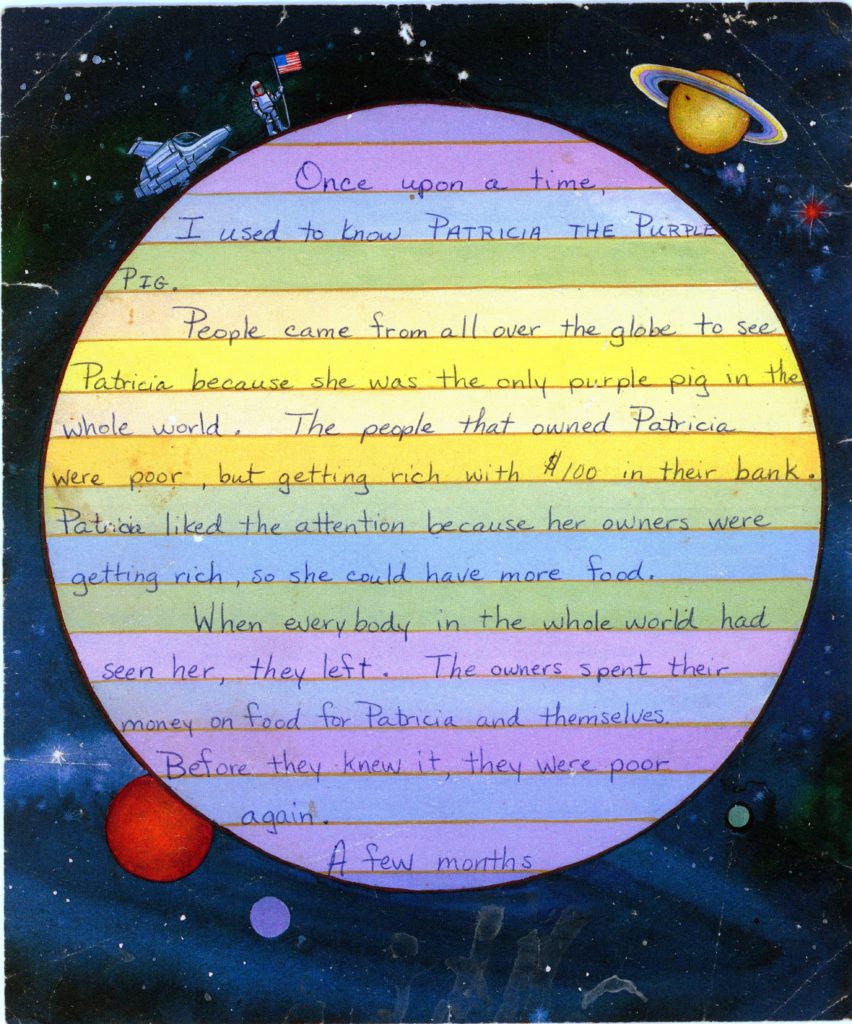 Once upon a time,
I used to know PATRICIA THE PURPLE
PIG.
People came from all over the globe to see
Patricia because she was the only purple pig in the
whole world. The people that owned Patricia
were poor, but getting rich with $100 in their bank.
Patricia liked the attention because her owners were
getting rich, so she could have more food.
When everybody in the whole world had
seen her, they left. The owners spent their
money on food for Patricia and themselves.
Before they knew it, they were poor
again.
A few months